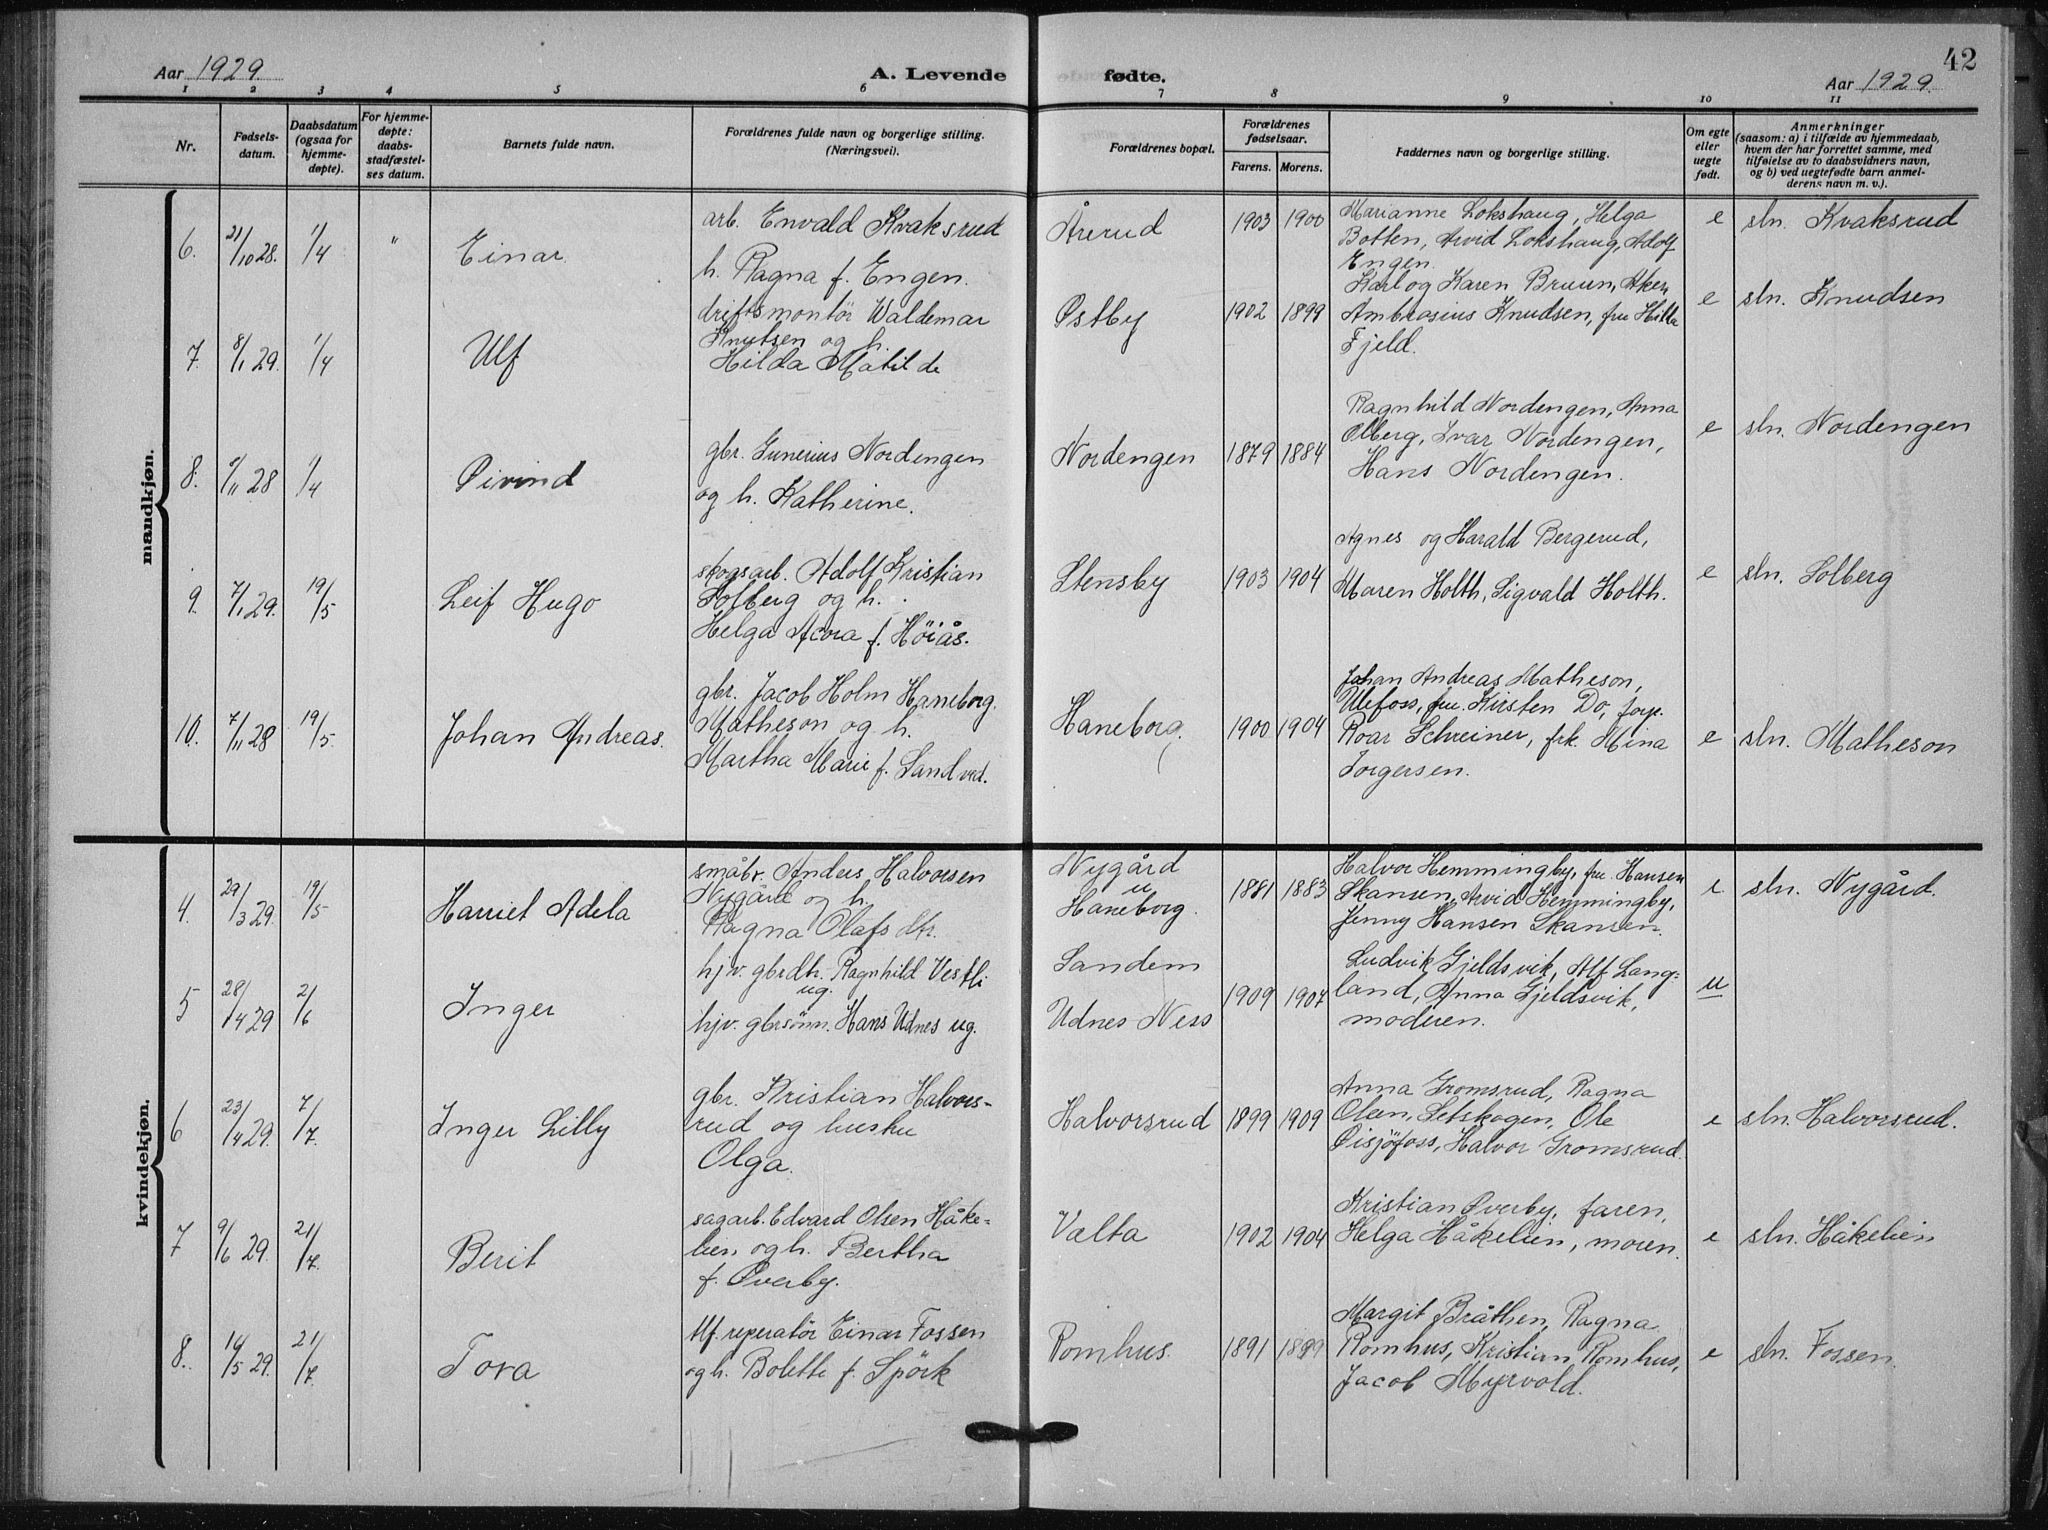 42
Aar 1929.
A. Levende
fødte.
Aar 1929.
1 2 3 4 5 6 7 8 9 10 11
Nr.
Fødsels-
datum.
Daabsdatum
(ogsaa for
hjemme-
døpte).
For hjemme-
døpte:
daabs-
stadfæstel-
ses datum.
Barnets fulde navn.
Forældrenes fulde navn og borgerlige stilling.
(Næringsvei).
Forældrenes bopæl.
Forældrenes
fødselsaar.
Farens. Morens.
Faddernes navn og borgerlige stilling.
Om egte
eller
uegte
født.
Anmerkninger
(saasom: a) i tilfælde av hjemmedaab,
hvem der har forrettet samme, med
tilføielse av to daabsvidners navn,
og b) ved uegtefødte barn anmel-
derens navn m. v.).
mandkjøn.
6. 21/10 28. 1/4 " Einar.
arb. Envald Kvaksrud
h. Ragna f. Engen.
Årerud 1903 1900
Marianne Lokshaug, Helga
Botten, Arvid Lokshaug, Adolf
Engen.
e sln. Kvaksrud
7. 8/1 29. 1/4 Ulf
driftsmontör Waldemar
Knutsen og h.
Hilda Matilde
Østby 1902 1899
Karl og Karen Bruun,
Ambrosius Knudsen, fru Hilla
Fjeld.
e sln. Knudsen
8. /11 28 1/4 Øivind
gbr. Gunerius Nordengen
og h. Katherine.
Nordengen 1879 1884
Ragnhild Nordengen, Anna
Olberg, Ivar Nordengen,
Hans Nordengen.
e sln. Nordengen
9. 7/1 29. 19/5 Leif Hugo
skogsarb. Adolf Kristian
Solberg og h.
Helga f. Höiås.
Stensby 1903 1904
Agnes og Harald Bergerud,
Maren Holth, Sigvald Holth.
e sln. Solberg
10. 7/11 28 19/5 Johan Andreas.
gbr. Jacob Holm Haneborg.
Matheson og h.
Martha Marie f. Sandved.
Haneborg. 1900 1904
Johan Andreas Matheson,
Ulefoss, fru. Kirsten Do, forp.
Roar Schreiner, frk. Mina
Torgersen.
e sln. Matheson
kvindekjøn.
4. 29/3 29. 19/5 Harriet Adela
småbr. Anders Halvorsen
Nygård og h.
Ragna Olafsdtr.
Nygård
u
Haneborg.
1881 1883
Halvor Hemmingby, fru Hansen
Skansen, Arvid Hemmingby,
Jenny Hansen Skansen.
e sln. Nygård.
5 28/4 29 2/6 Inger
hjv. gbrdtr. Ragnhild Vestli
ug.
hjv. gbrsönn. Hans Udnes ug.
Sandem
Udnes Ness
1909 1907
Ludvik Gjeldsvik, Alf Lang=
land, Anna Gjeldsvik,
moderen.
u
6 23/4 29. 7/7. Inger Lilly
gbr. Kristian Halvors-
rud og hustru
Olga.
Halvorsrud 1899 1909
Anna Gromsrud, Ragna
Olsen, Setskogen, Ole
Øisjöfoss, Halvor Gromsrud.
e sln. Halvorsrud.
7 9/6 29. 21/7. Berit
sagarb. Edvard Olsen Håke-
lien og h. Bertha
f. Øverby.
Valta 1902 1904
Kristian Øverby, faren,
Helga Håkelien, moren.
e sln. Håkelien
8. 16/5 29. 21/7. Tora
tlf. reperatör Einar Fossen
og h. Bolette f. Spörk
Romhus 1891 1899
Margit Bråthen, Ragna
Romhus, Kristian Romhus,
Jacob Myrvold.
e sln. Fossen.